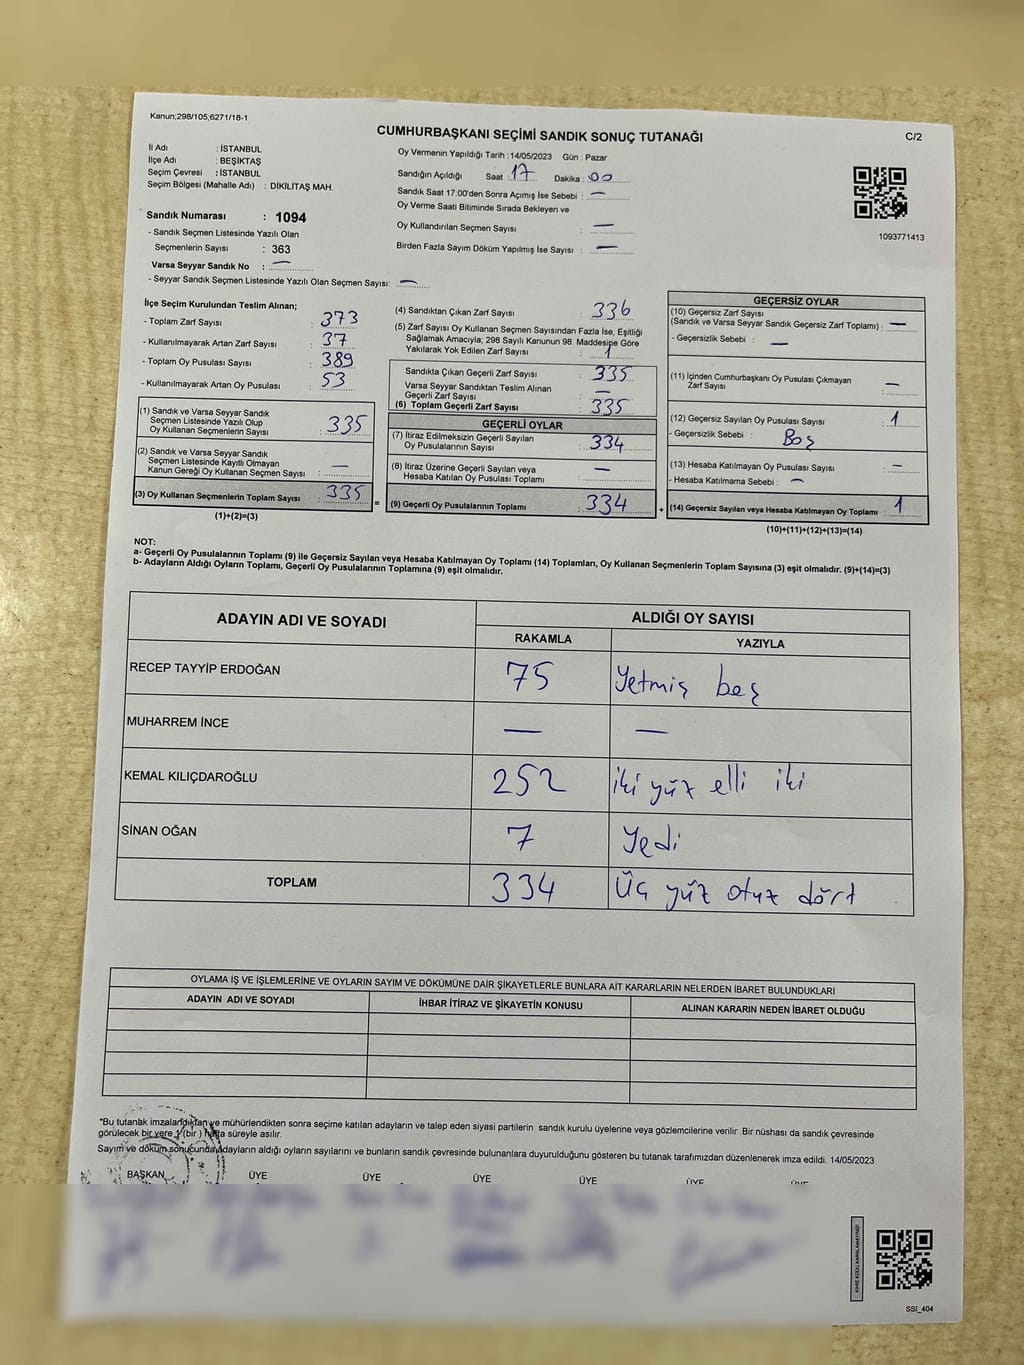 Kanun;298/105;6271/18-1
CUMHURBAŞKANI SEÇİMİ SANDIK SONUÇ TUTANAĞI
C/2
İl Adı : İSTANBUL
İlçe Adı : BEŞİKTAŞ
Seçim Çevresi : İSTANBUL
Seçim Bölgesi (Mahalle Adı) : DİKİLİTAŞ MAH.
Sandık Numarası : 1094
- Sandık Seçmen Listesinde Yazılı Olan
Seçmenlerin Sayısı : 363
Varsa Seyyar Sandık No : —
- Seyyar Sandık Seçmen Listesinde Yazılı Olan Seçmen Sayısı: —
Oy Vermenin Yapıldığı Tarih :14/05/2023 Gün : Pazar
Sandığın Açıldığı Saat : 17 Dakika : 00
Sandık Saat 17:00'den Sonra Açımış İse Sebebi : —
Oy Verme Saati Bitiminde Sırada Bekleyen ve
Oy Kullandırılan Seçmen Sayısı : —
Birden Fazla Sayım Döküm Yapılmış İse Sayısı : —
1093771413
İlçe Seçim Kurulundan Teslim Alınan;
- Toplam Zarf Sayısı : 373
- Kullanılmayarak Artan Zarf Sayısı : 37
- Toplam Oy Pusulası Sayısı : 389
- Kullanılmayarak Artan Oy Pusulası : 53
(1) Sandık ve Varsa Seyyar Sandık
Seçmen Listesinde Yazılı Olup
Oy Kullanan Seçmenlerin Sayısı : 335
(2) Sandık ve Varsa Seyyar Sandık
Seçmen Listesinde Kayıtlı Olmayan
Kanun Gereği Oy Kullanan Seçmen Sayısı : —
(3) Oy Kullanan Seçmenlerin Toplam Sayısı : 335
(1)+(2)=(3)
=
(4) Sandıktan Çıkan Zarf Sayısı : 336
(5) Zarf Sayısı Oy Kullanan Seçmen Sayısından Fazla İse, Eşitliği
Sağlamak Amacıyla; 298 Sayılı Kanunun 98. Maddesine Göre
Yakılarak Yok Edilen Zarf Sayısı : 1
Sandıkta Çıkan Geçerli Zarf Sayısı : 335
Varsa Seyyar Sandıktan Teslim Alınan
Geçerli Zarf Sayısı : —
(6) Toplam Geçerli Zarf Sayısı : 335
GEÇERLİ OYLAR
(7) İtiraz Edilmeksizin Geçerli Sayılan
Oy Pusulalarının Sayısı : 334
(8) İtiraz Üzerine Geçerli Sayılan veya
Hesaba Katılan Oy Pusulası Toplamı : —
(9) Geçerli Oy Pusulalarının Toplamı : 334
+
GEÇERSİZ OYLAR
(10) Geçersiz Zarf Sayısı
(Sandık ve Varsa Seyyar Sandık Geçersiz Zarf Toplamı) : —
- Geçersizlik Sebebi : —
(11) İçinden Cumhurbaşkanı Oy Pusulası Çıkmayan
Zarf Sayısı : —
(12) Geçersiz Sayılan Oy Pusulası Sayısı : 1
- Geçersizlik Sebebi : Boş
(13) Hesaba Katılmayan Oy Pusulası Sayısı : —
- Hesaba Katılmama Sebebi : —
(14) Geçersiz Sayılan veya Hesaba Katılmayan Oy Toplamı : 1
(10)+(11)+(12)+(13)=(14)
NOT:
a- Geçerli Oy Pusulalarının Toplamı (9) ile Geçersiz Sayılan veya Hesaba Katılmayan Oy Toplamı (14) Toplamları, Oy Kullanan Seçmenlerin Toplam Sayısına (3) eşit olmalıdır. (9)+(14)=(3)
b- Adayların Aldığı Oyların Toplamı, Geçerli Oy Pusulalarının Toplamına (9) eşit olmalıdır.
ADAYIN ADI VE SOYADI
ALDIĞI OY SAYISI
RAKAMLA YAZIYLA
RECEP TAYYİP ERDOĞAN 75 Yetmiş beş
MUHARREM İNCE — —
KEMAL KILIÇDAROĞLU 252 iki yüz elli iki
SİNAN OĞAN 7 Yedi
TOPLAM 334 Üç yüz otuz dört
OYLAMA İŞ VE İŞLEMLERİNE VE OYLARIN SAYIM VE DÖKÜMÜNE DAİR ŞİKAYETLERLE BUNLARA AİT KARARLARIN NELERDEN İBARET BULUNDUKLARI
ADAYIN ADI VE SOYADI İHBAR İTİRAZ VE ŞİKAYETİN KONUSU ALINAN KARARIN NEDEN İBARET OLDUĞU
*Bu tutanak imzalandıktan ve mühürlendikten sonra seçime katılan adayların ve talep eden siyasi partilerin sandık kurulu üyelerine veya gözlemcilerine verilir .Bir nüshası da sandık çevresinde
görülecek bir yere 1 (bir ) hafta süreyle asılır.
Sayım ve döküm sonucunda adayların aldığı oyların sayılarını ve bunların sandık çevresinde bulunanlara duyurulduğunu gösteren bu tutanak tarafımızdan düzenlenerek imza edildi. 14/05/2023
BAŞKAN ÜYE ÜYE ÜYE ÜYE ÜYE ÜYE
KARE KODU KARALAMAYINIZ!
SSI_404